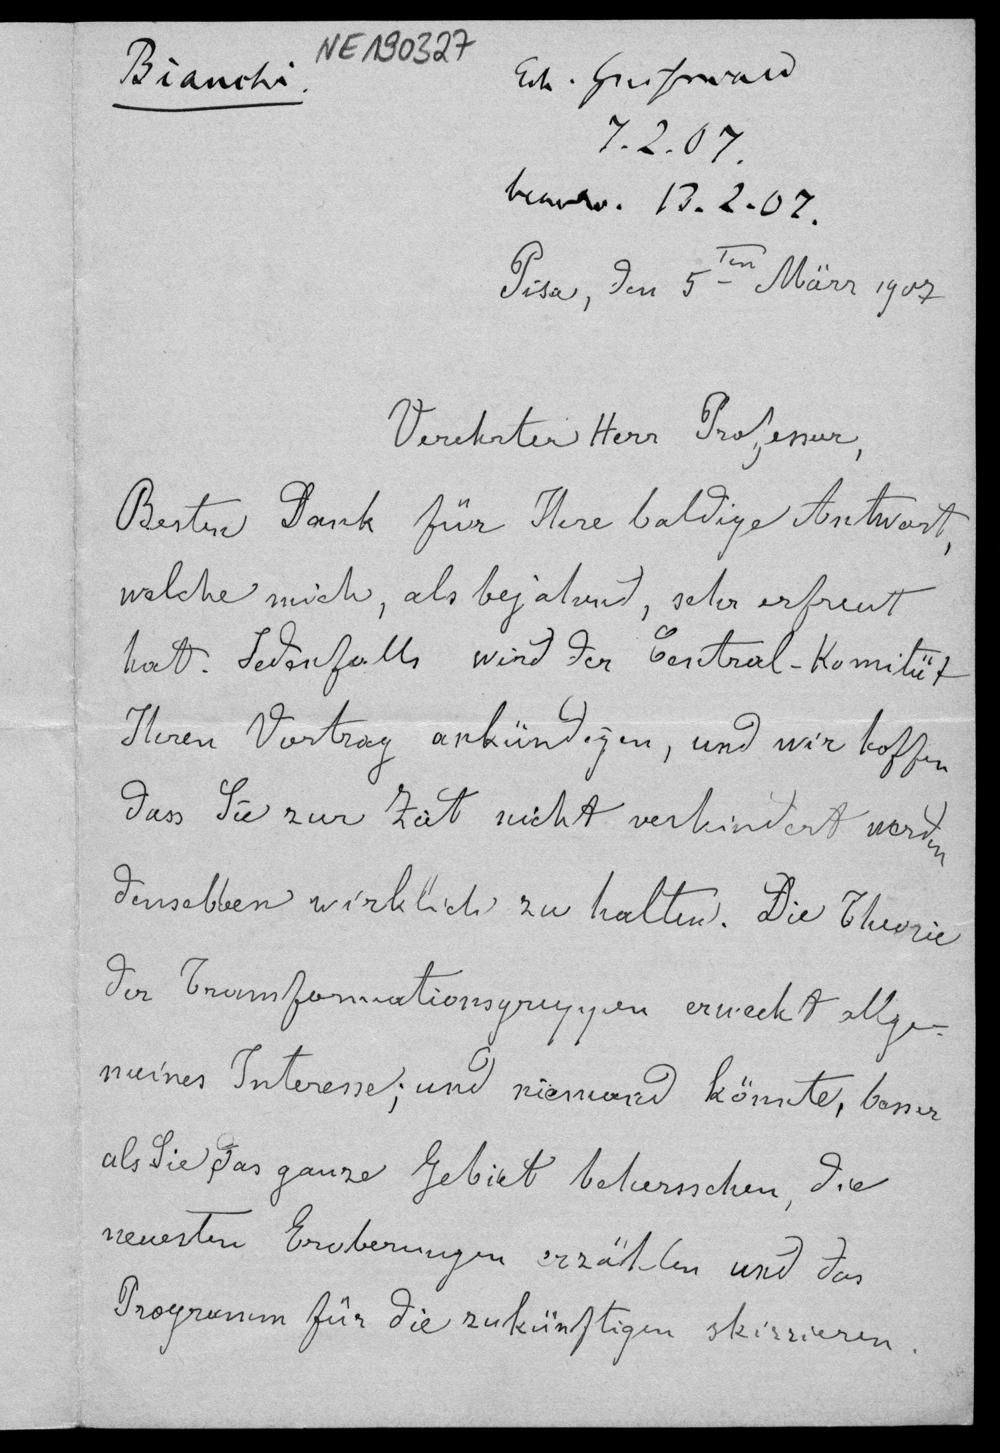 Bianchi.
NE190327
Erh. Greifswald
7.2.07.
beantw. 13.2.07.
Pisa, den 5ten März 1907
Verehrter Herr Professor,
Besten Dank für Ihre baldige Antwort,
welche mich, als bejahend, sehr erfreut
hat. Jedenfalls wird der Central-Komität
Ihren Vortrag ankündigen, und wir hoffen
dass Sie zur Zeit nicht verhindert werden
denselben wirklich zu halten. Die Theorie
der Transformationsgruppen erweckt allge-
meines Interesse; und niemand könnte, besser
als Sie, das ganze Gebiet beherrschen, die
neuesten Eroberungen erzählen und das
Programm für die zukünftigen skizzieren.